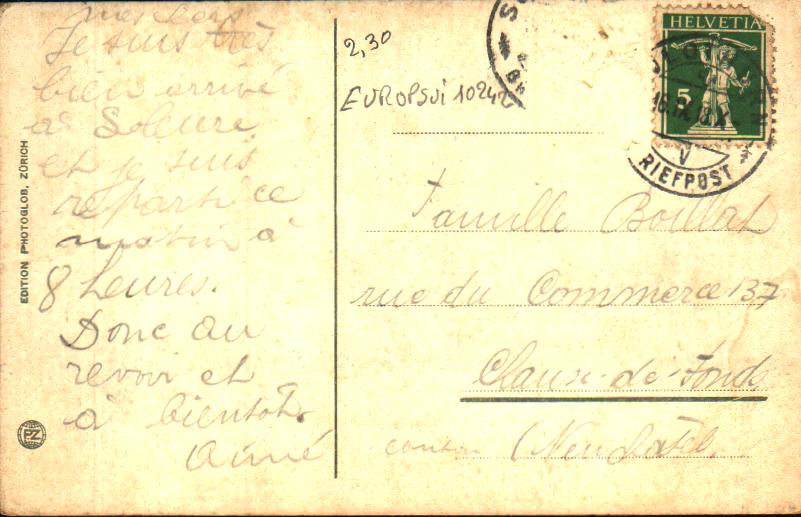 mes chers
Je suis très
bien arrivé
à Soleure
et je suis
reparti ce
matin à
8 heures.
Donc au
revoir et
à bientôt.
Aimé
EDITION PHOTOGLOB, ZÜRICH
PZ
2,30
EUROPSUI 10242
HELVETIA
5
RIEFPOST
Famille Boillat
rue du Commerce 137
Chaux-de-Fonds
canton (Neuchâtel.